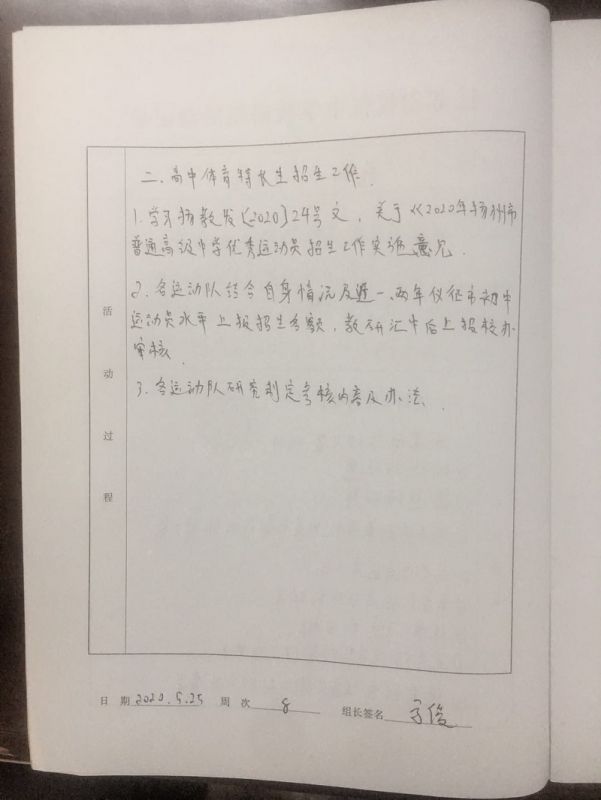 二、高中体育特长生招生工作.
1.学习扬教发〔2020〕24号文，关于《2020年扬州市
普通高级中学优秀运动员招生工作实施意见.
2.各运动队结合自身情况及近一、两年仪征市初中
运动员水平上报招生名额，教研汇中后上报校办
审核.
3.各运动队研究制定考核内容及办法.
活
动
过
程
日 期 2020.5.25 周 次 8 组长签名